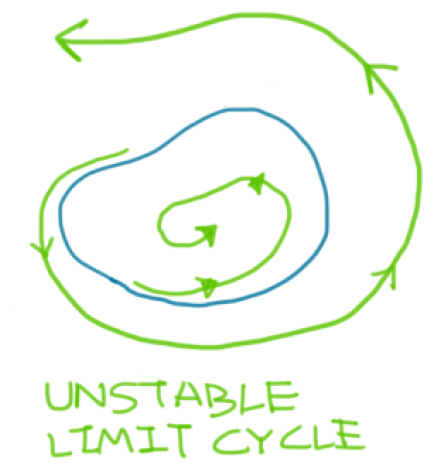 UNSTABLE
LIMIT CYCLE